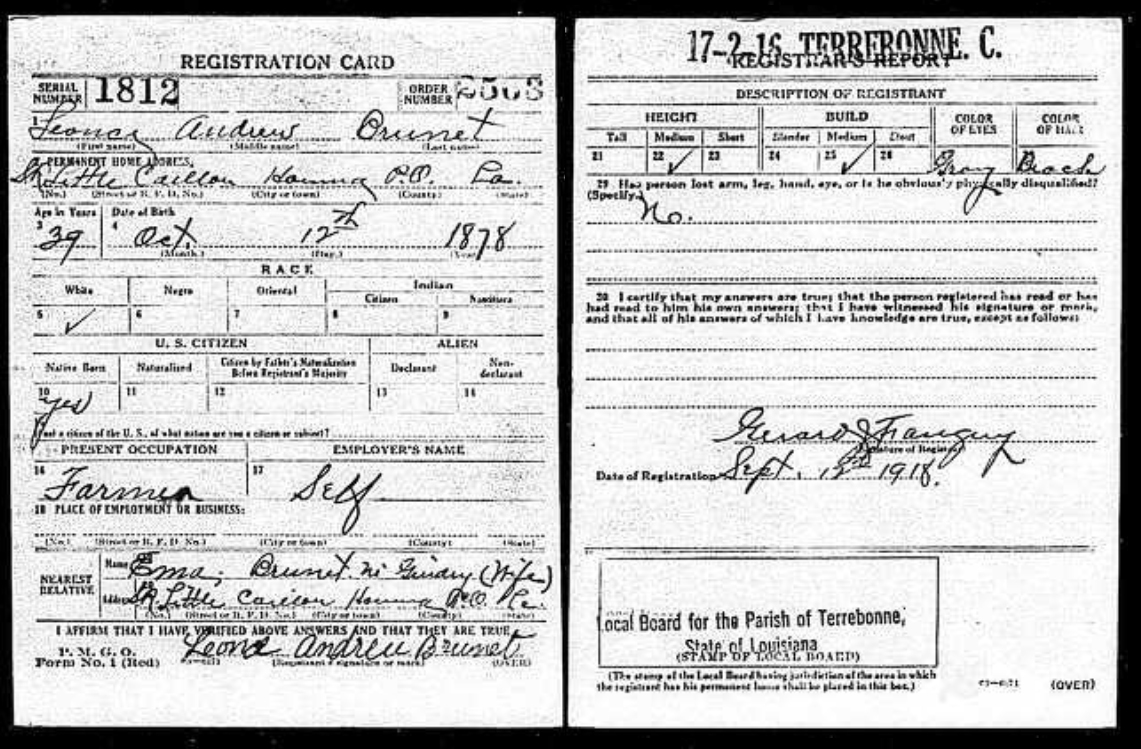 REGISTRATION CARD
SERIAL NUMBER 1812 ORDER NUMBER
1 Andrew Brunet
(First name) (Middle name) (Last name)
2 PERMANENT HOME ADDRESS:
Little Caillou Houma P.O. La.
(No.) (Street or R. F. D. No.) (City or town) (County) (State)
Age in Years Date of Birth
3 39 4 Oct. 12th 1878
(Month.) (Day.) (Year.)
RACE
White Negro Oriental Indian
Citizen Noncitizen
5 ✓ 6 7 8 9
U. S. CITIZEN ALIEN
Native Born Naturalized Citizen by Father's Naturalization Before Registrant's Majority Declarant Non-declarant
10 yes 11 12 13 14
not a citizen of the U. S., of what nation are you a citizen or subject?
PRESENT OCCUPATION EMPLOYER'S NAME
16 Farmer 17 Self
18 PLACE OF EMPLOYMENT OR BUSINESS:
(No.) (Street or R. F. D. No.) (City or town) (County) (State)
NEAREST RELATIVE Name Ema Brunet (Wife)
Address Little Caillou Houma P.O. La.
(No.) (Street or R. F. D. No.) (City or town) (County) (State)
I AFFIRM THAT I HAVE VERIFIED ABOVE ANSWERS AND THAT THEY ARE TRUE
P. M. G. O.
Form No. 1 (Red) Andrew Brunet
(Registrant's signature or mark) (OVER)
17-2-16 TERREBONNE. C.
REGISTRAR'S REPORT
DESCRIPTION OF REGISTRANT
HEIGHT BUILD COLOR OF EYES COLOR OF HAIR
Tall Medium Short Slender Medium Stout
21 22 ✓ 23 24 25 ✓ 26 Gray Black
29 Has person lost arm, leg, hand, eye, or is he obviously physically disqualified?
(Specify.) No.
30 I certify that my answers are true; that the person registered has read or has
had read to him his own answers; that I have witnessed his signature or mark,
and that all of his answers of which I have knowledge are true, except as follows:
(Signature of Registrar)
Date of Registration Sept. 1918.
Local Board for the Parish of Terrebonne,
State of Louisiana
(STAMP OF LOCAL BOARD)
(The stamp of the Local Board having jurisdiction of the area in which
the registrant has his permanent home shall be placed in this box.)
(OVER)